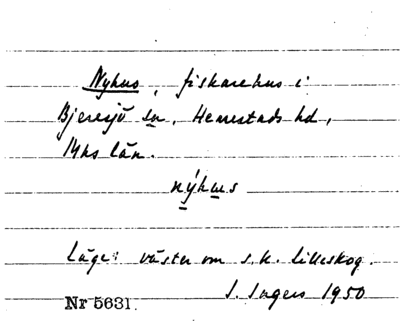 Nyhus, fiskarehus i
Bjeresjö sn, Herrestads hd,
Mhs län.
nýhus
Läge: väster om s.k. Lilleskog.
S. Ingers 1950
Nr 5631.